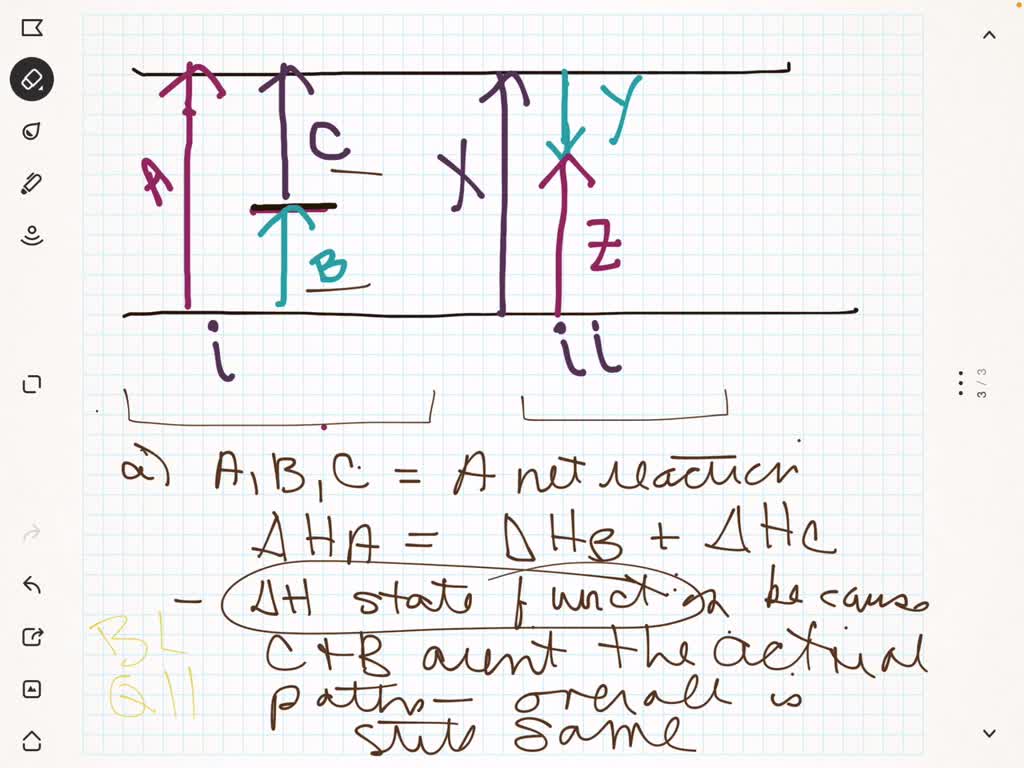 A
C
B
X
Y
Z
i
ii
a) A, B, C = A net reaction
ΔHA = ΔHB + ΔHC
- ΔH state function because
C+B arent the actual
path - overall is
same
BL
Q11
3/3